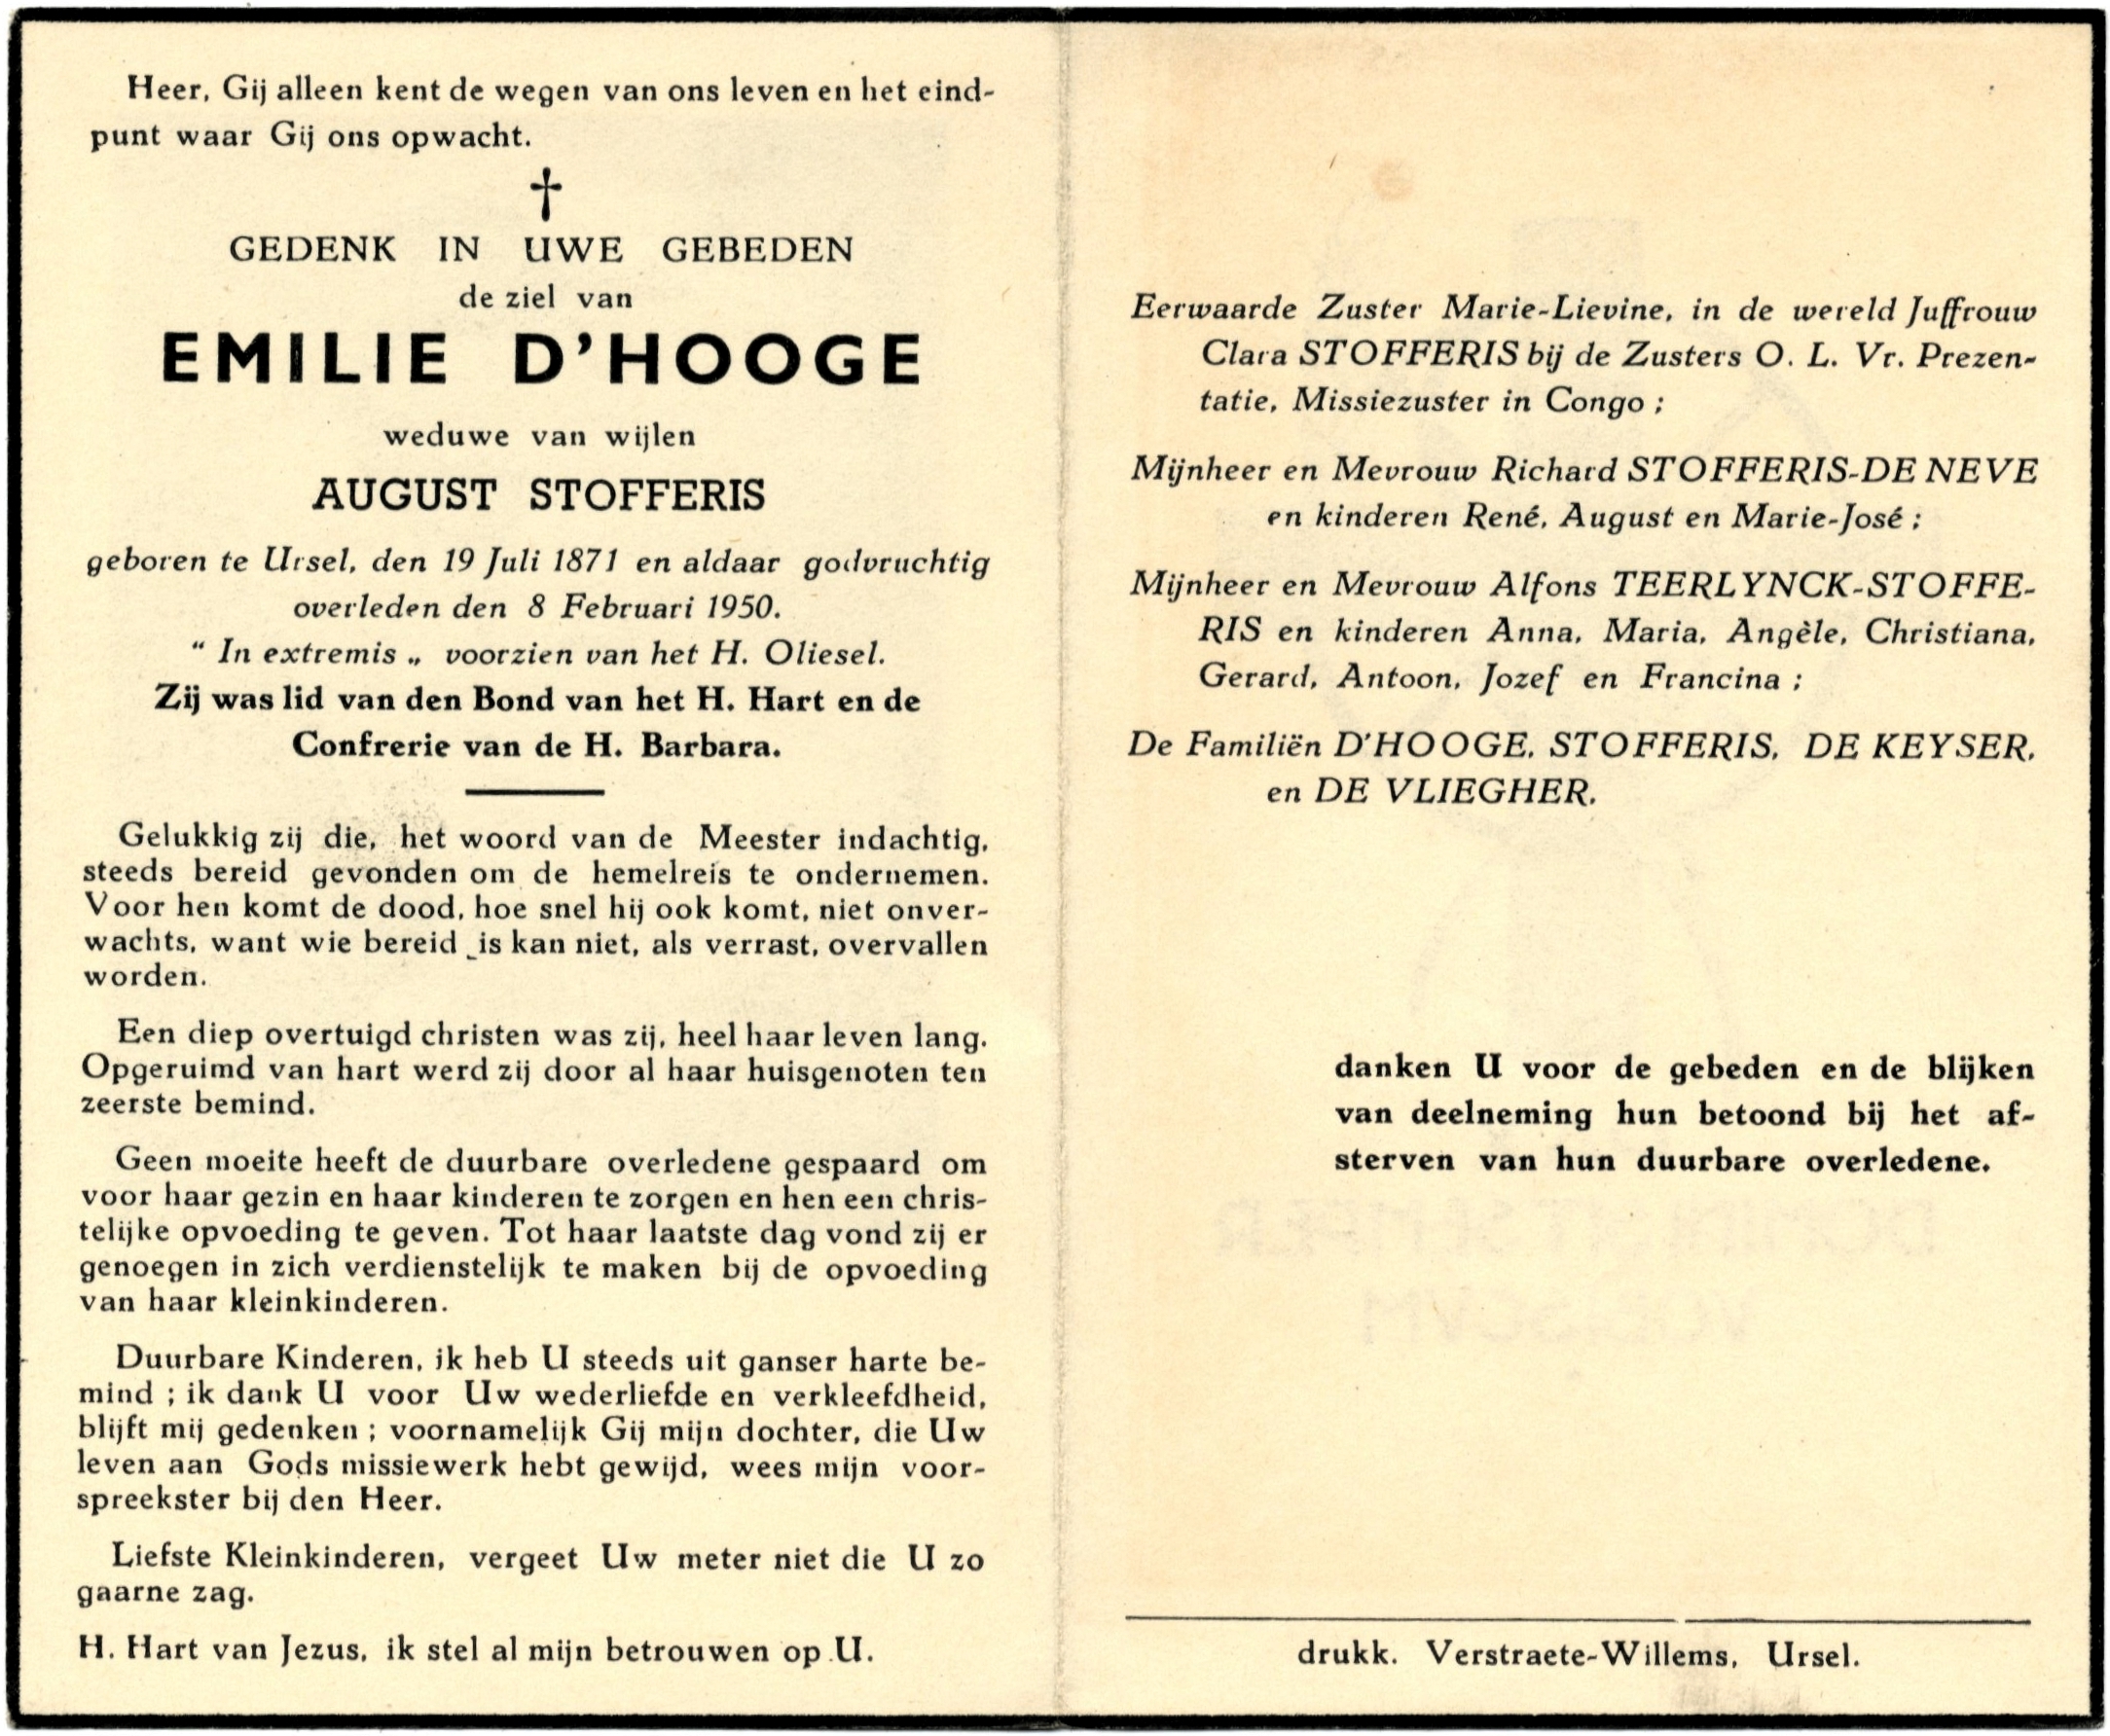 Heer, Gij alleen kent de wegen van ons leven en het eind-
punt waar Gij ons opwacht.
GEDENK IN UWE GEBEDEN
de ziel van
EMILIE D'HOOGE
weduwe van wijlen
AUGUST STOFFERIS
geboren te Ursel, den 19 Juli 1871 en aldaar godvruchtig
overleden den 8 Februari 1950.
“ In extremis „ voorzien van het H. Oliesel.
Zij was lid van den Bond van het H. Hart en de
Confrerie van de H. Barbara.
Gelukkig zij die, het woord van de Meester indachtig,
steeds bereid gevonden om de hemelreis te ondernemen.
Voor hen komt de dood, hoe snel hij ook komt, niet onver-
wachts, want wie bereid is kan niet, als verrast, overvallen
worden.
Een diep overtuigd christen was zij, heel haar leven lang.
Opgeruimd van hart werd zij door al haar huisgenoten ten
zeerste bemind.
Geen moeite heeft de duurbare overledene gespaard om
voor haar gezin en haar kinderen te zorgen en hen een chris-
telijke opvoeding te geven. Tot haar laatste dag vond zij er
genoegen in zich verdienstelijk te maken bij de opvoeding
van haar kleinkinderen.
Duurbare Kinderen, ik heb U steeds uit ganser harte be-
mind ; ik dank U voor Uw wederliefde en verkleefdheid,
blijft mij gedenken ; voornamelijk Gij mijn dochter, die Uw
leven aan Gods missiewerk hebt gewijd, wees mijn voor-
spreekster bij den Heer.
Liefste Kleinkinderen, vergeet Uw meter niet die U zo
gaarne zag.
H. Hart van Jezus, ik stel al mijn betrouwen op U.
Eerwaarde Zuster Marie-Lievine, in de wereld Juffrouw
Clara STOFFERIS bij de Zusters O. L. Vr. Prezen-
tatie, Missiezuster in Congo ;
Mijnheer en Mevrouw Richard STOFFERIS-DE NEVE
en kinderen René, August en Marie-José ;
Mijnheer en Mevrouw Alfons TEERLYNCK-STOFFE-
RIS en kinderen Anna, Maria, Angèle, Christiana,
Gerard, Antoon, Jozef en Francina ;
De Familiën D'HOOGE, STOFFERIS, DE KEYSER,
en DE VLIEGHER,
danken U voor de gebeden en de blijken
van deelneming hun betoond bij het af-
sterven van hun duurbare overledene.
drukk. Verstraete-Willems, Ursel.